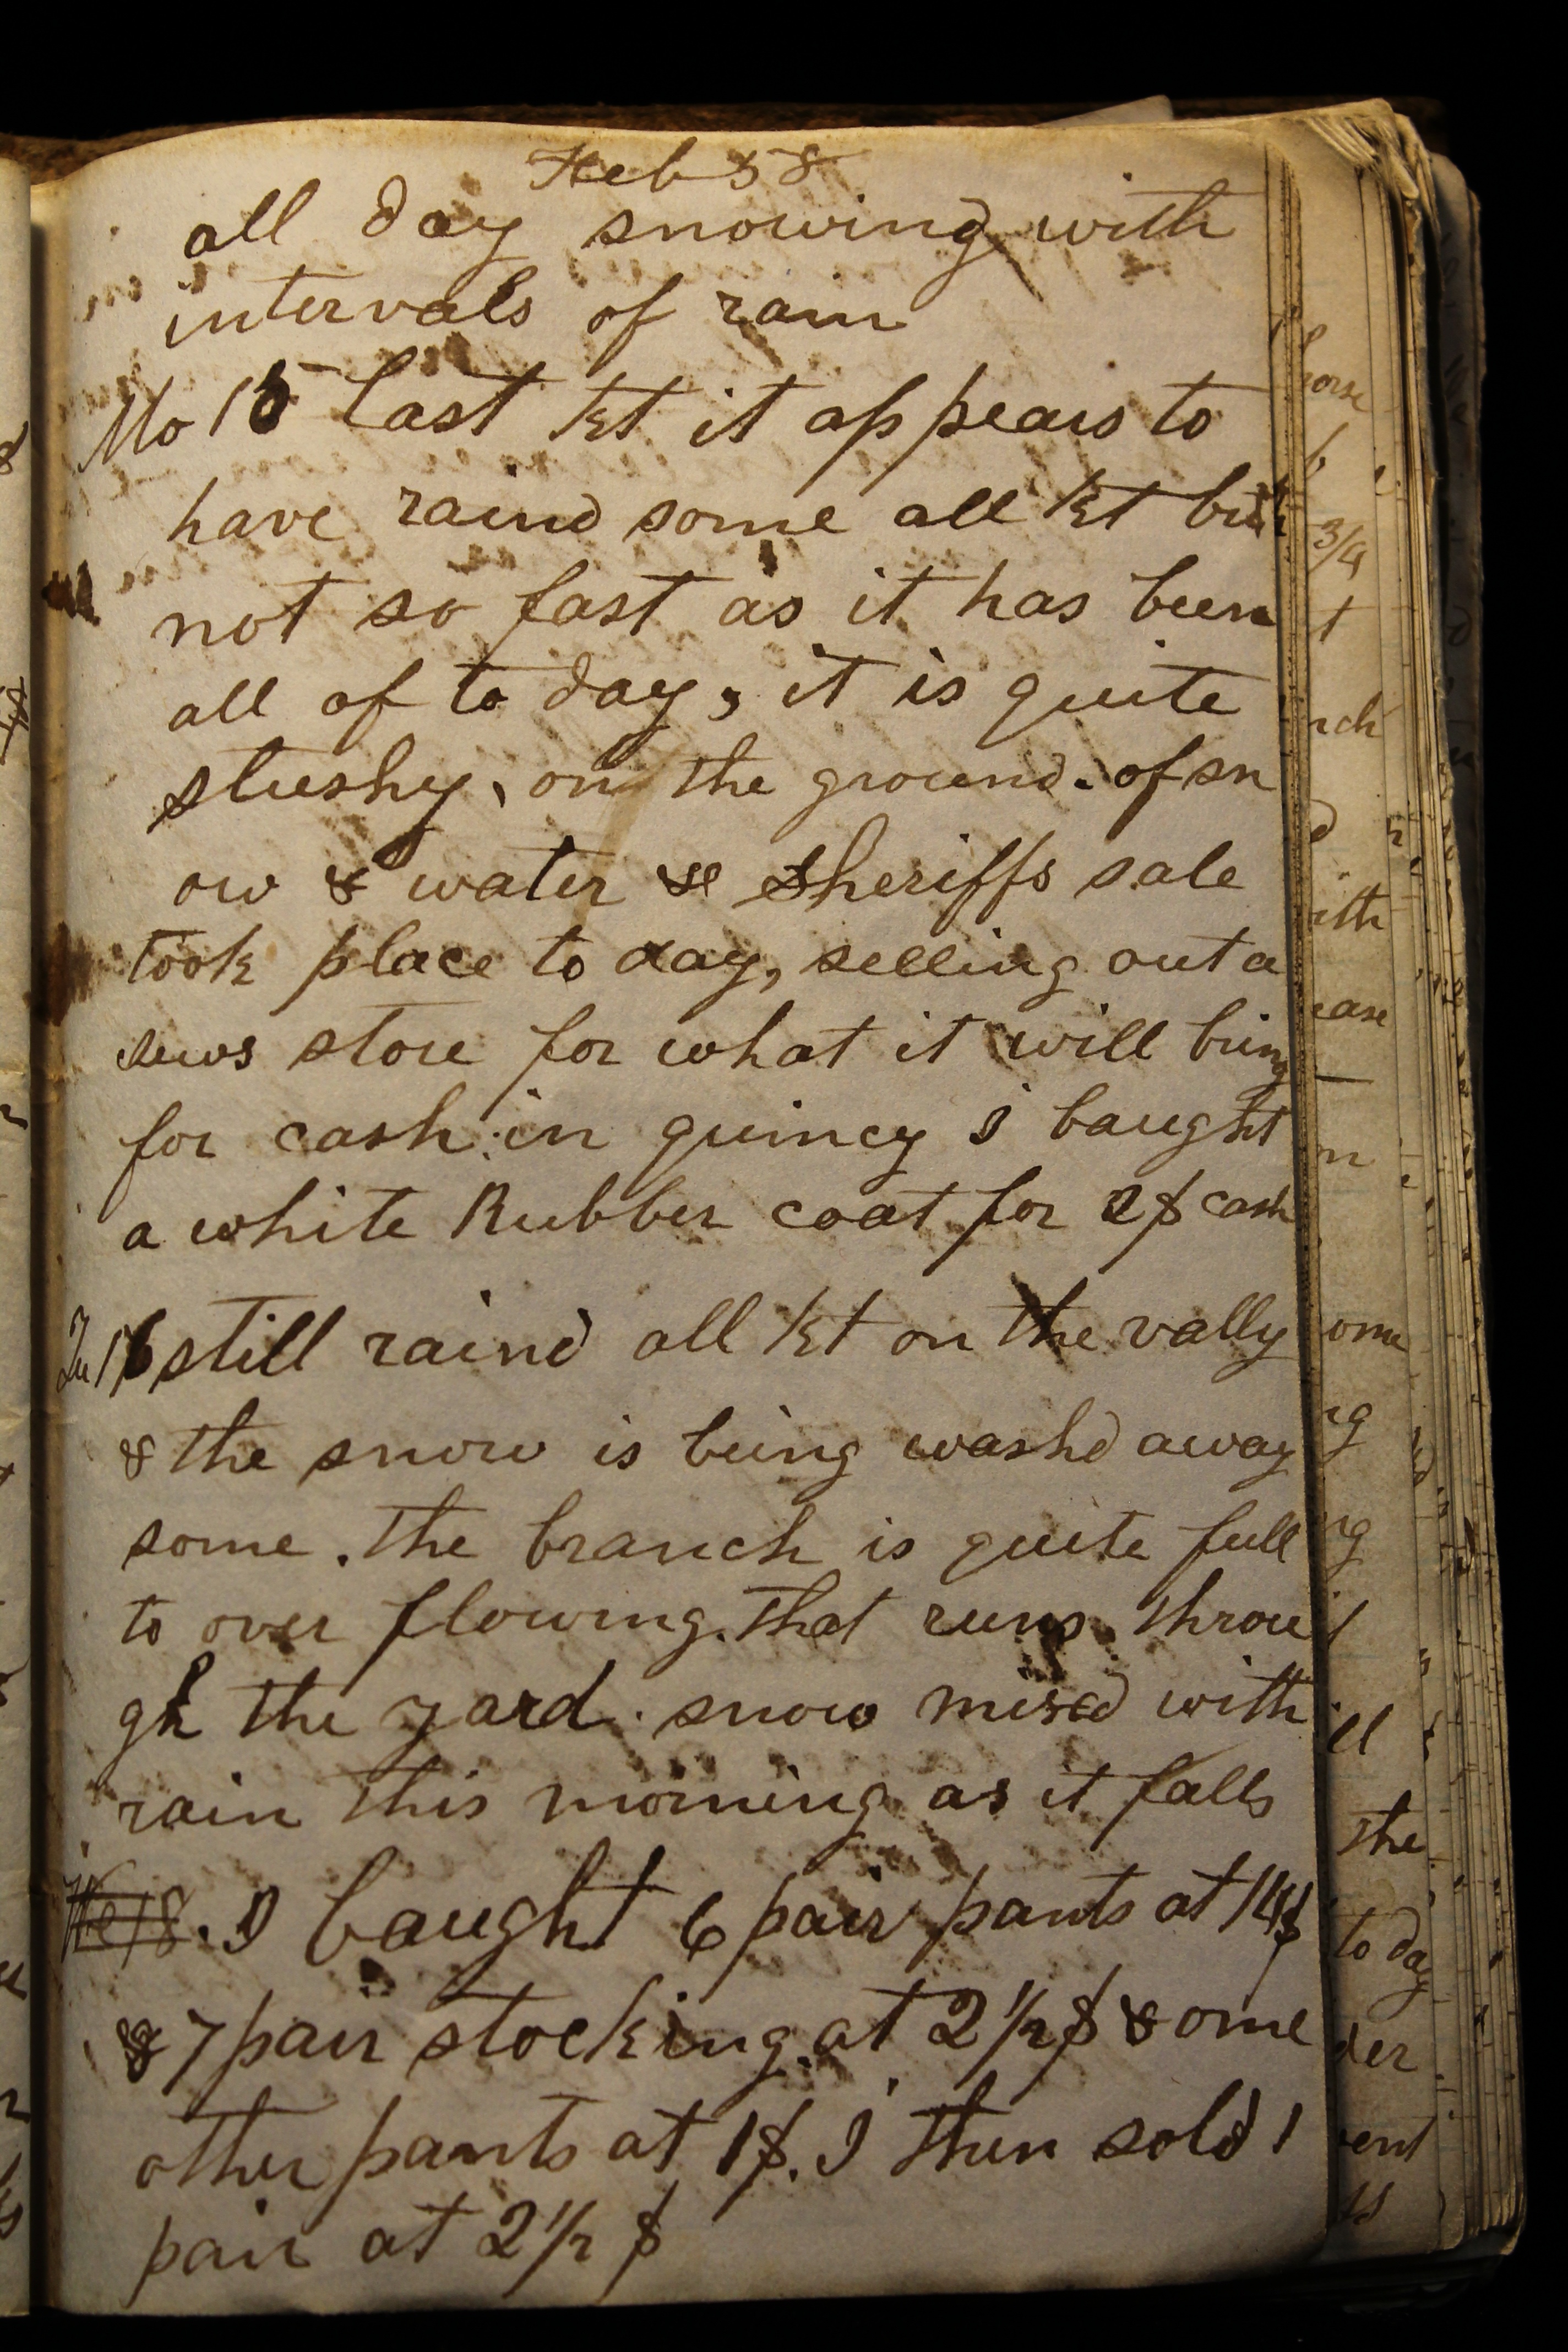 Feb 58
all day snowing with
intervals of rain
Mo 15 last kt it appears to
have raind some all kt but
not so fast as it has been
all of to day, it is quite
slushy, on the ground. of sn
ow & water & Sheriffs sale
took place to day, selling out a
jews store for what it will bring
for cash in quincy I baught
a white Rubber coat for 2$ cash
Tu 16 still raind all kt on the vally
& the snow is being washd away
some. the branch is quite full
to over flowing. that runs throu
gh the yard. snow mixed with
rain this morning as it falls
I baught 6 pair pants at 14$
& 7 pair stocking at 2 1/2 $ & ome
other pants at 1$. I then sold 1
pair at 2 1/2 $
horse
3/4
t
nch
d
ith
ease
m
ome
ng
ng
ill
the
to day
der
ent